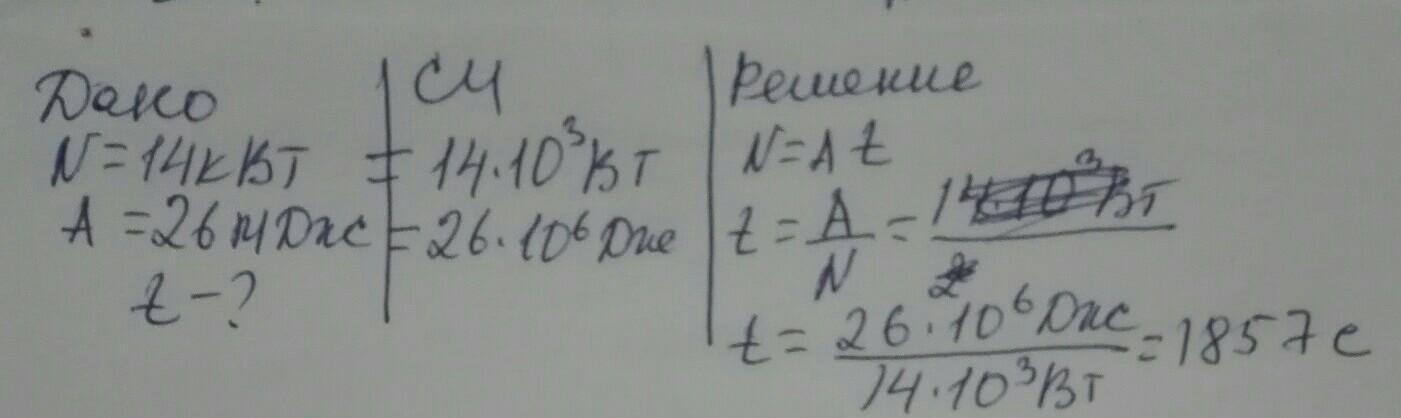 Дано
N=14кВт
A=26МДж
t-?
СИ
=14·10³Вт
=26·10⁶Дж
Решение
N=A t
t=A/N=
t=26·10⁶Дж/14·10³Вт=1857с